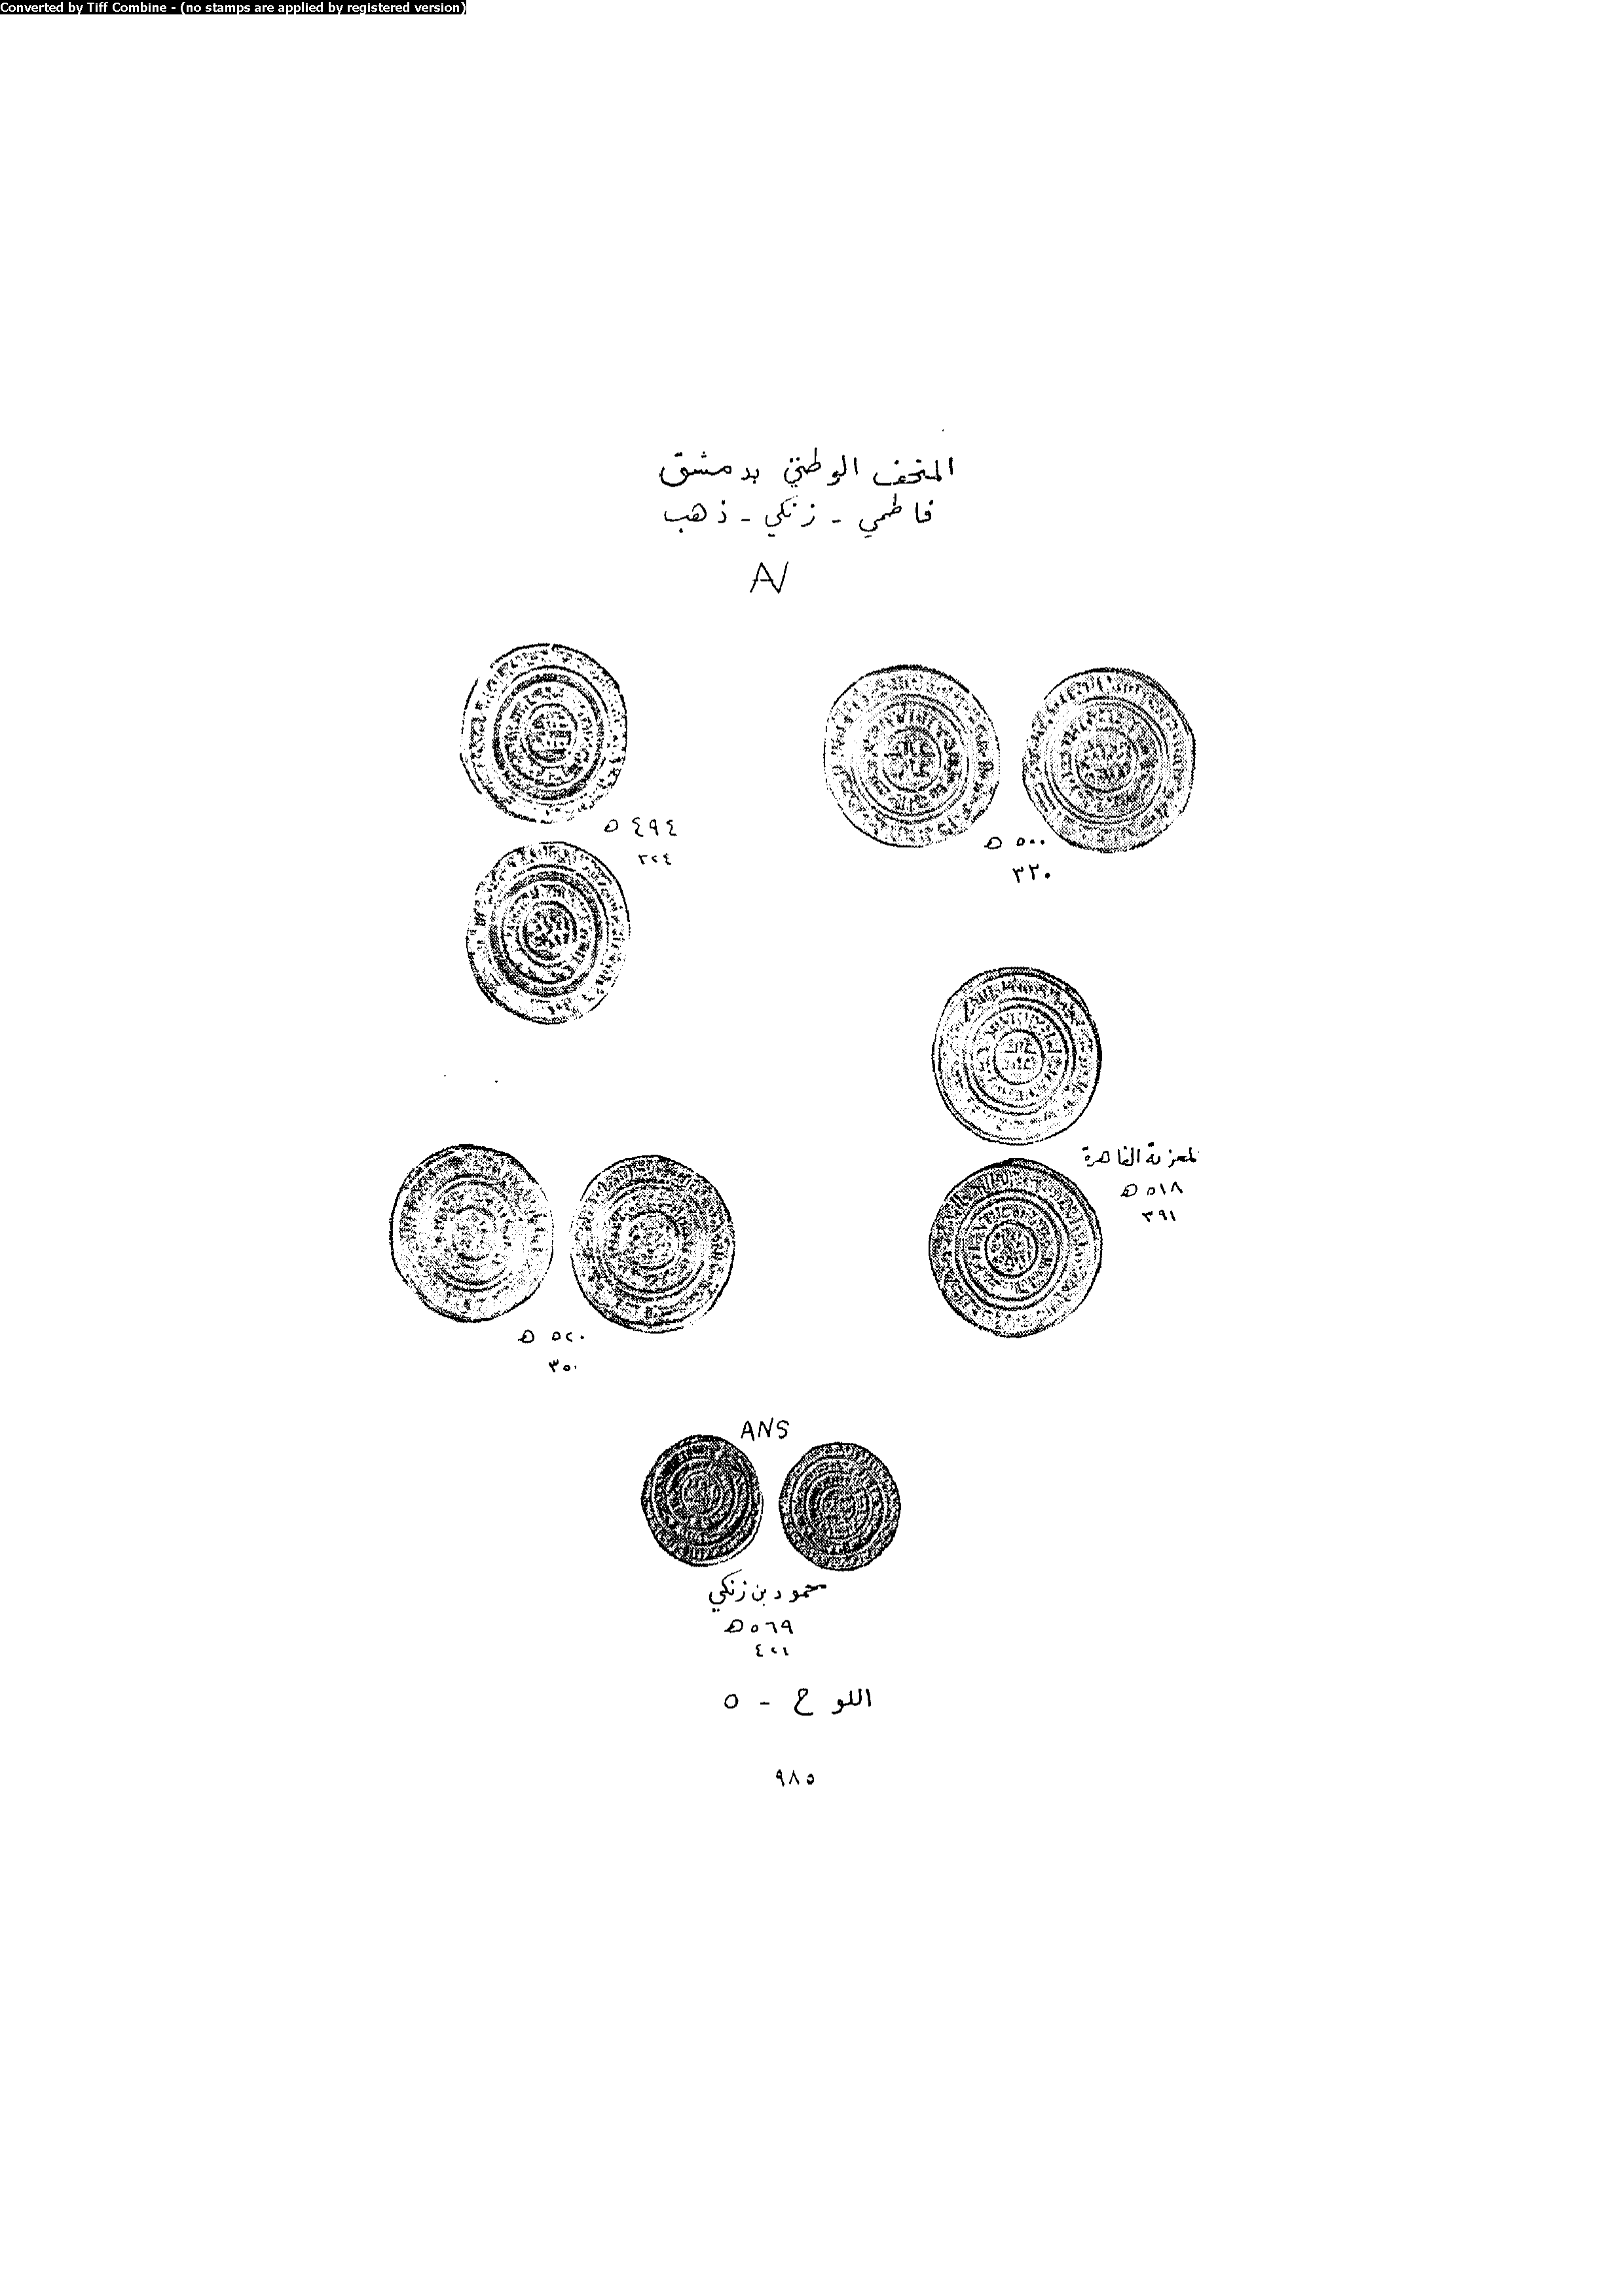 Converted by Tiff Combine - (no stamps are applied by registered version)
المتحف الوطني بدمشق
فاطمي - زنكي - ذهب
AV
٥٠٠ هـ
٣٢٠
٤٩٤ هـ
٣٢٤
المعزية القاهرة
٥١٨ هـ
٣٩١
٥٢٠ هـ
٣٥٠
ANS
محمود بن زنكي
٥٦٩ هـ
اللوح - ٥
٩٨٥